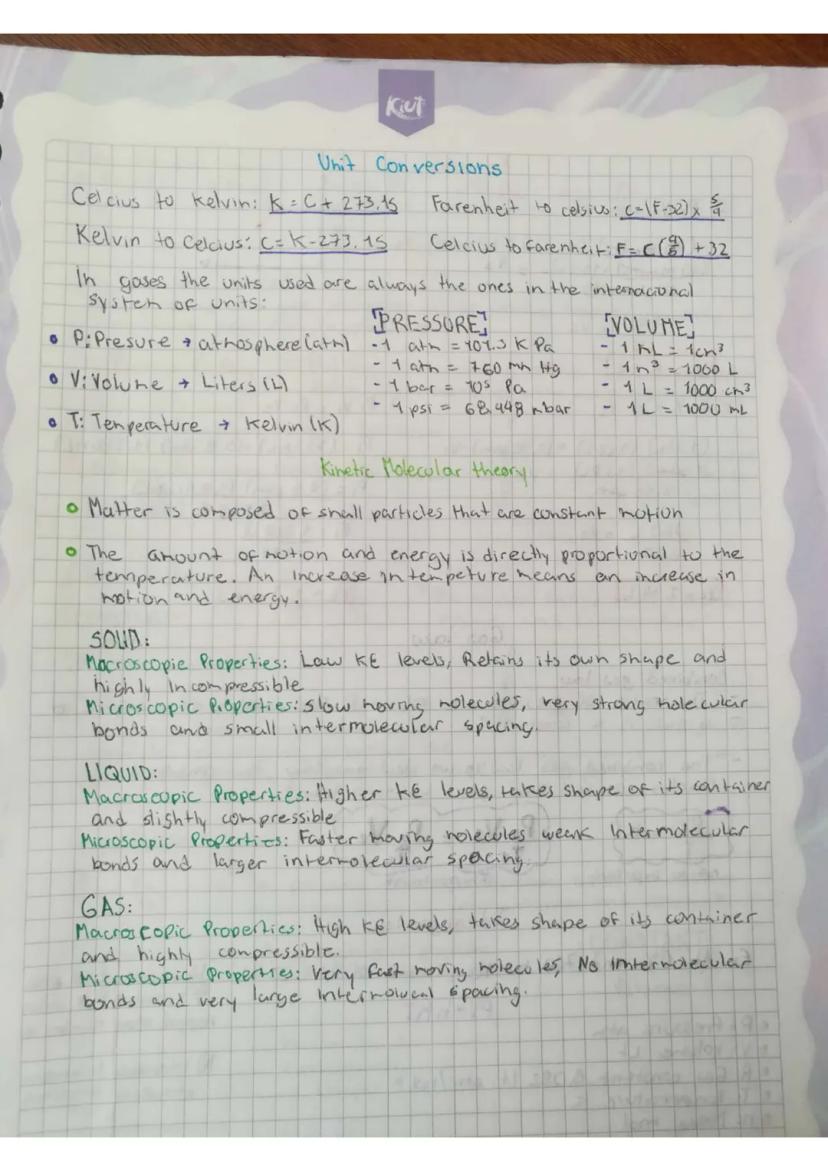 Kiut
Unit Conversions
Celcius to Kelvin: K = C + 273.15 Farenheit to celsius: C=(F-32) x 5/9
Kelvin to Celcius: C = K-273.15 Celcius to farenheit: F= C(9/5) + 32
In gases the units used are always the ones in the internacional
System of units:
[PRESSURE] [VOLUME]
• P: Presure → atmosphere (atm) -1 atm = 101.3 K Pa - 1 mL = 1cm³
- 1 atm = 760 mm Hg - 1m³ = 1000 L
• V: Volume → Liters (L) - 1 bar = 10⁵ Pa - 1L = 1000 cm³
- 1 psi = 68,948 mbar - 1L = 1000 mL
• T: Temperature → Kelvin (K)
Kinetic Molecular theory
• Matter is composed of small particles that are constant motion
• The amount of motion and energy is directly proportional to the
temperature. An increase in tempeture means an increase in
motion and energy.
SOLID:
Macroscopic Properties: Low KE levels, Retains its own shape and
highly incompressible
Microscopic Properties: Slow moving molecules, very strong molecular
bonds and small intermolecular spacing.
LIQUID:
Macroscopic Properties: Higher KE levels, takes shape of its container
and slightly compressible
Microscopic Properties: Faster moving molecules weak Intermolecular
bonds and larger intermolecular spacing.
GAS:
Macroscopic Properties: High KE levels, takes shape of its container
and highly compressible.
Microscopic Properties: Very fast moving molecules, No intermolecular
bonds and very large spacing.